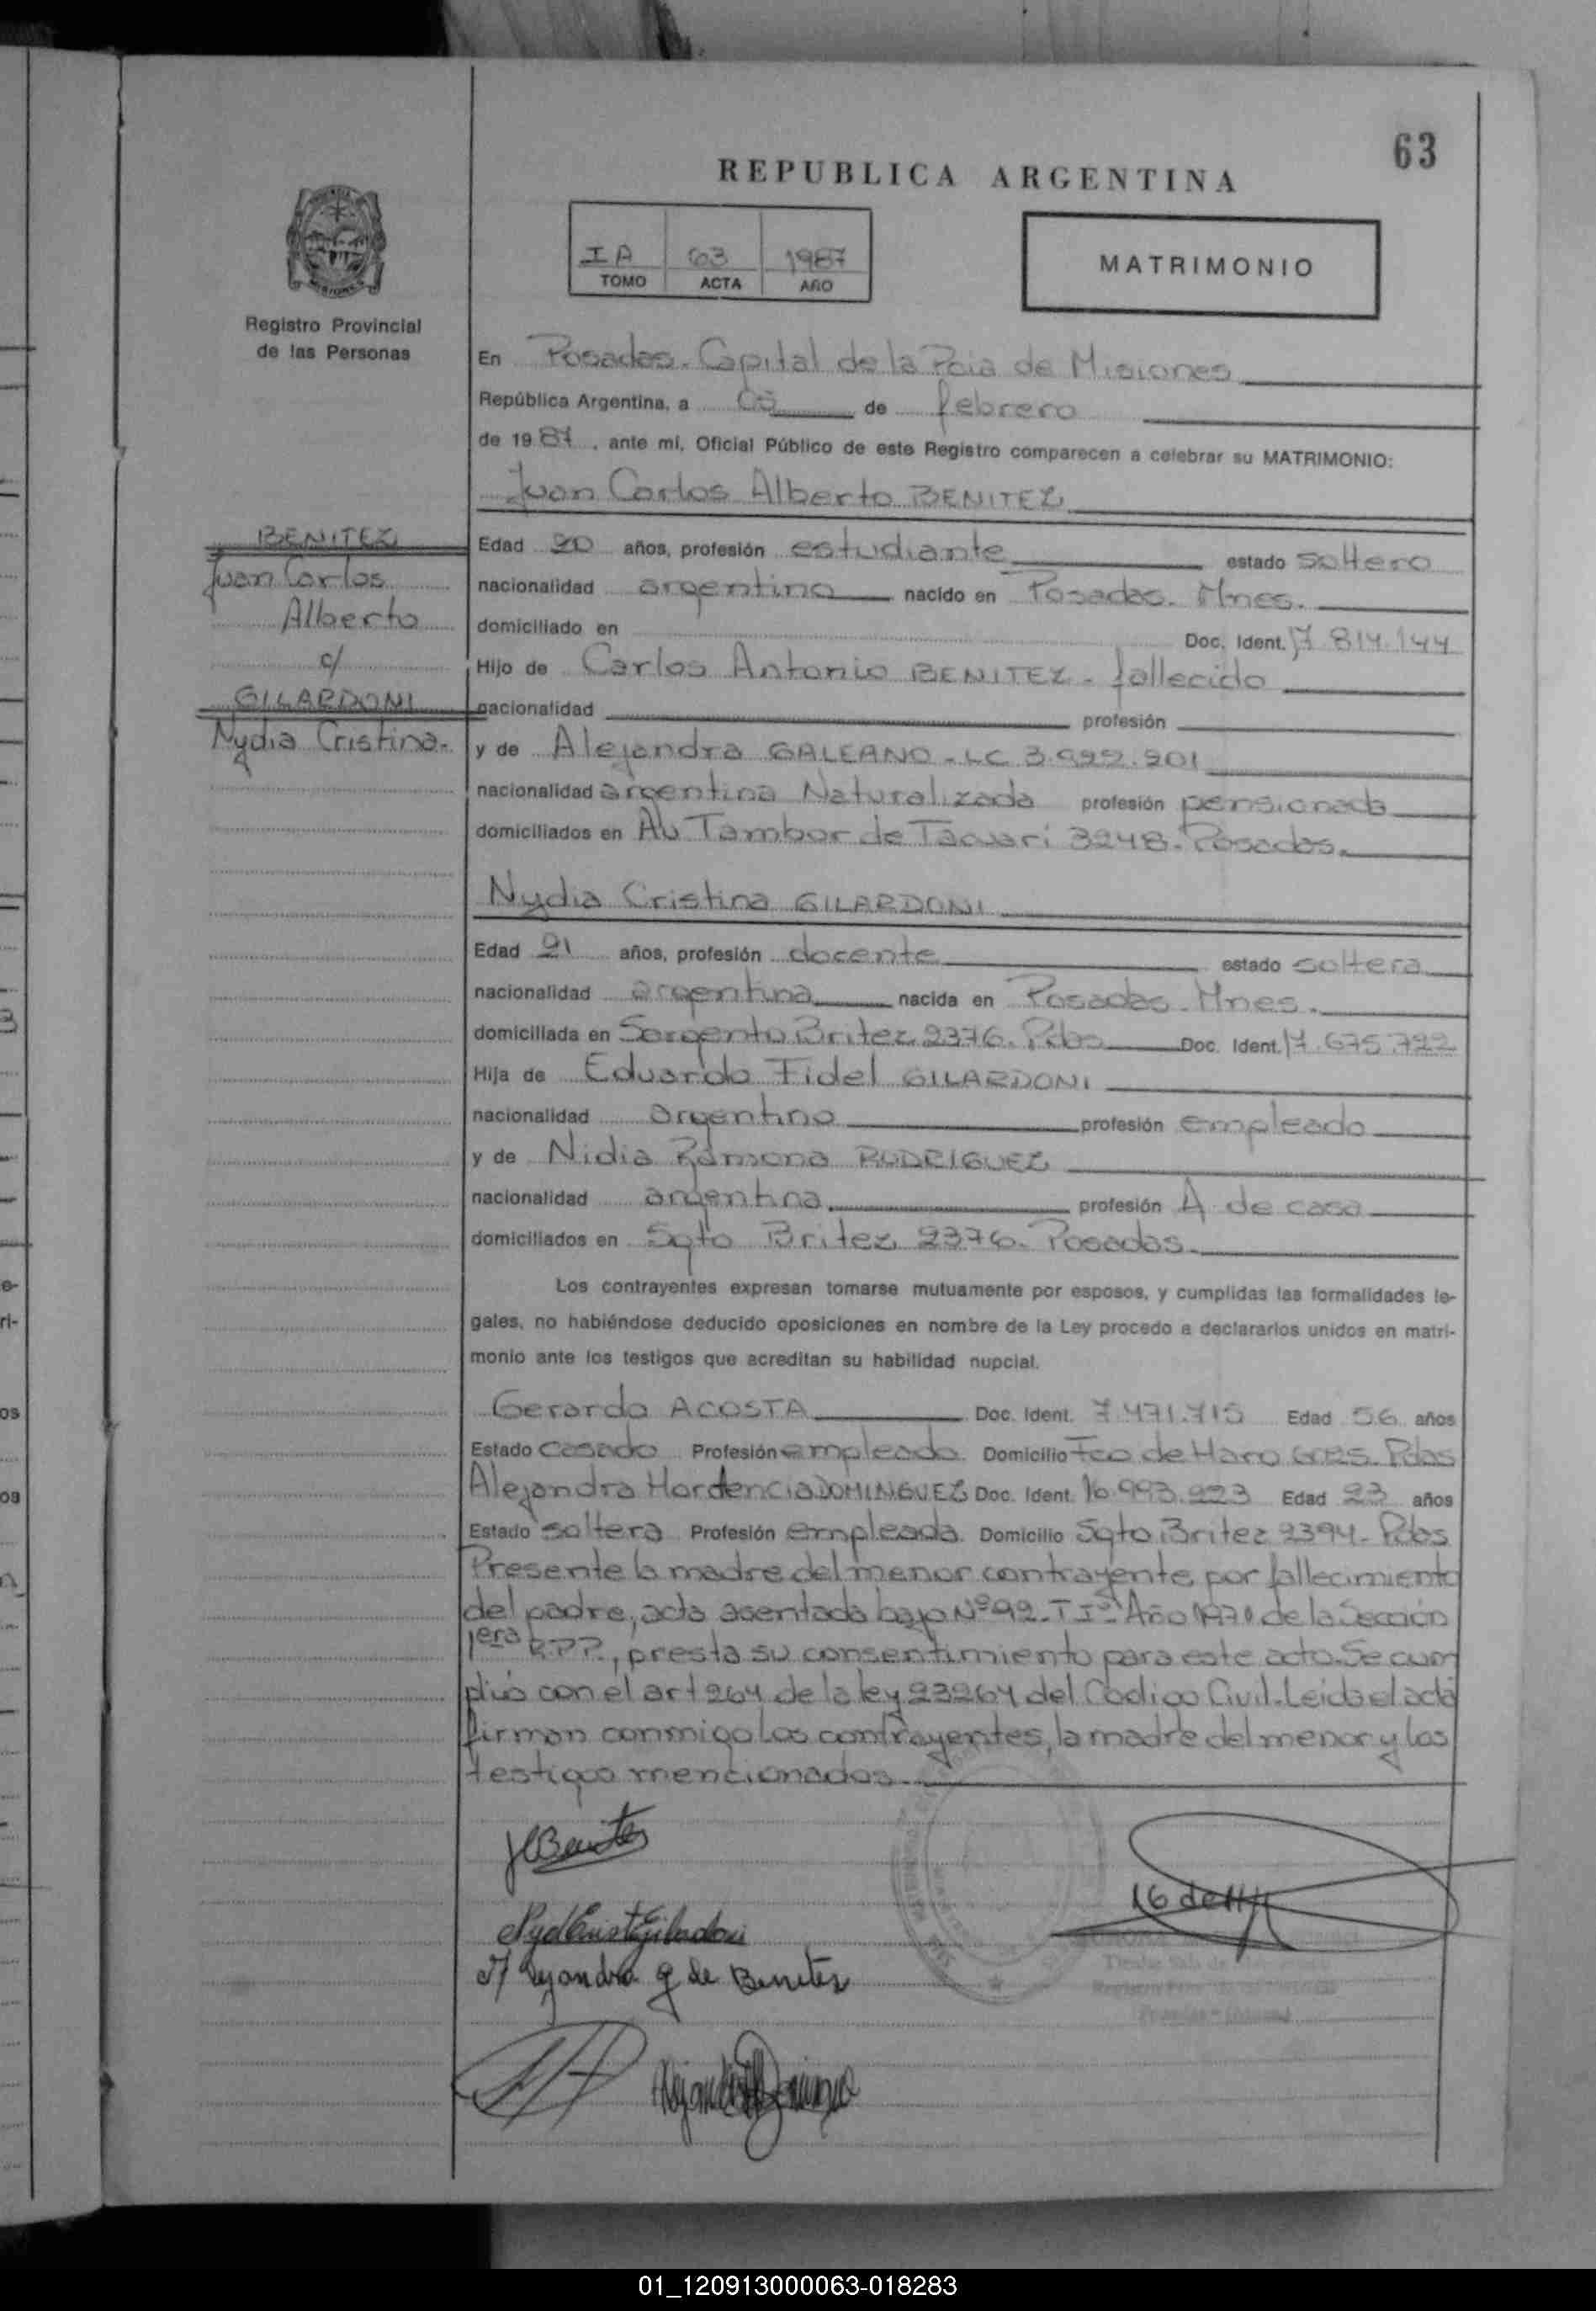 63
REPUBLICA ARGENTINA
IA 63 1987
TOMO ACTA AÑO
MATRIMONIO
Registro Provincial
de las Personas
En Posadas. Capital de la Pcia de Misiones
República Argentina, a 05 de febrero
de 1987, ante mi, Oficial Público de este Registro comparecen a celebrar su MATRIMONIO:
Juan Carlos Alberto BENITEZ
BENITEZ
Juan Carlos
Alberto
c/
GILARDONI
Nydia Cristina.
Edad 20 años, profesión estudiante estado soltero
nacionalidad argentino nacido en Posadas. Mnes.
domiciliado en Doc. Ident. 17.814.144
Hijo de Carlos Antonio BENITEZ - fallecido
nacionalidad profesión
y de Alejandra GALEANO - LC 3.922.201
nacionalidad argentina Naturalizada profesión pensionada
domiciliados en Av Tambor de Tacuarí 3248. Posadas.
Nydia Cristina GILARDONI
Edad 21 años, profesión docente estado soltera
nacionalidad argentina nacida en Posadas. Mnes.
domiciliada en Sargento Britez 2376. Pdas Doc. Ident. 17.675.722
Hija de Eduardo Fidel GILARDONI
nacionalidad argentino profesión empleado
y de Nidia Ramona RODRIGUEZ
nacionalidad argentina profesión A de casa
domiciliados en Sgto Britez 2376. Posadas.
Los contrayentes expresan tomarse mutuamente por esposos, y cumplidas las formalidades le-
gales, no habiéndose deducido oposiciones en nombre de la Ley procedo a declararlos unidos en matri-
monio ante los testigos que acreditan su habilidad nupcial.
Gerardo ACOSTA Doc. Ident. 7.471.715 Edad 56 años
Estado casado Profesión empleado Domicilio Fco de Haro Pdas
Alejandra Hordencia DOMINGUEZ Doc. Ident. 16.993.223 Edad 23 años
Estado soltera Profesión empleada Domicilio Sgto Britez 2394 - Pdas
Presente la madre del menor contrayente por fallecimiento
del padre, acta asentada bajo Nº 92 - T Iº Año 1970 de la Sección
1era R.P.P., presta su consentimiento para este acto. Se cum
plió con el art 264 de la ley 23264 del Codigo Civil. Leida el acta
firman conmigo los contrayentes, la madre del menor y los
testigos mencionados
JCBenitez
Alejandra g de Benitez
01_120913000063-018283